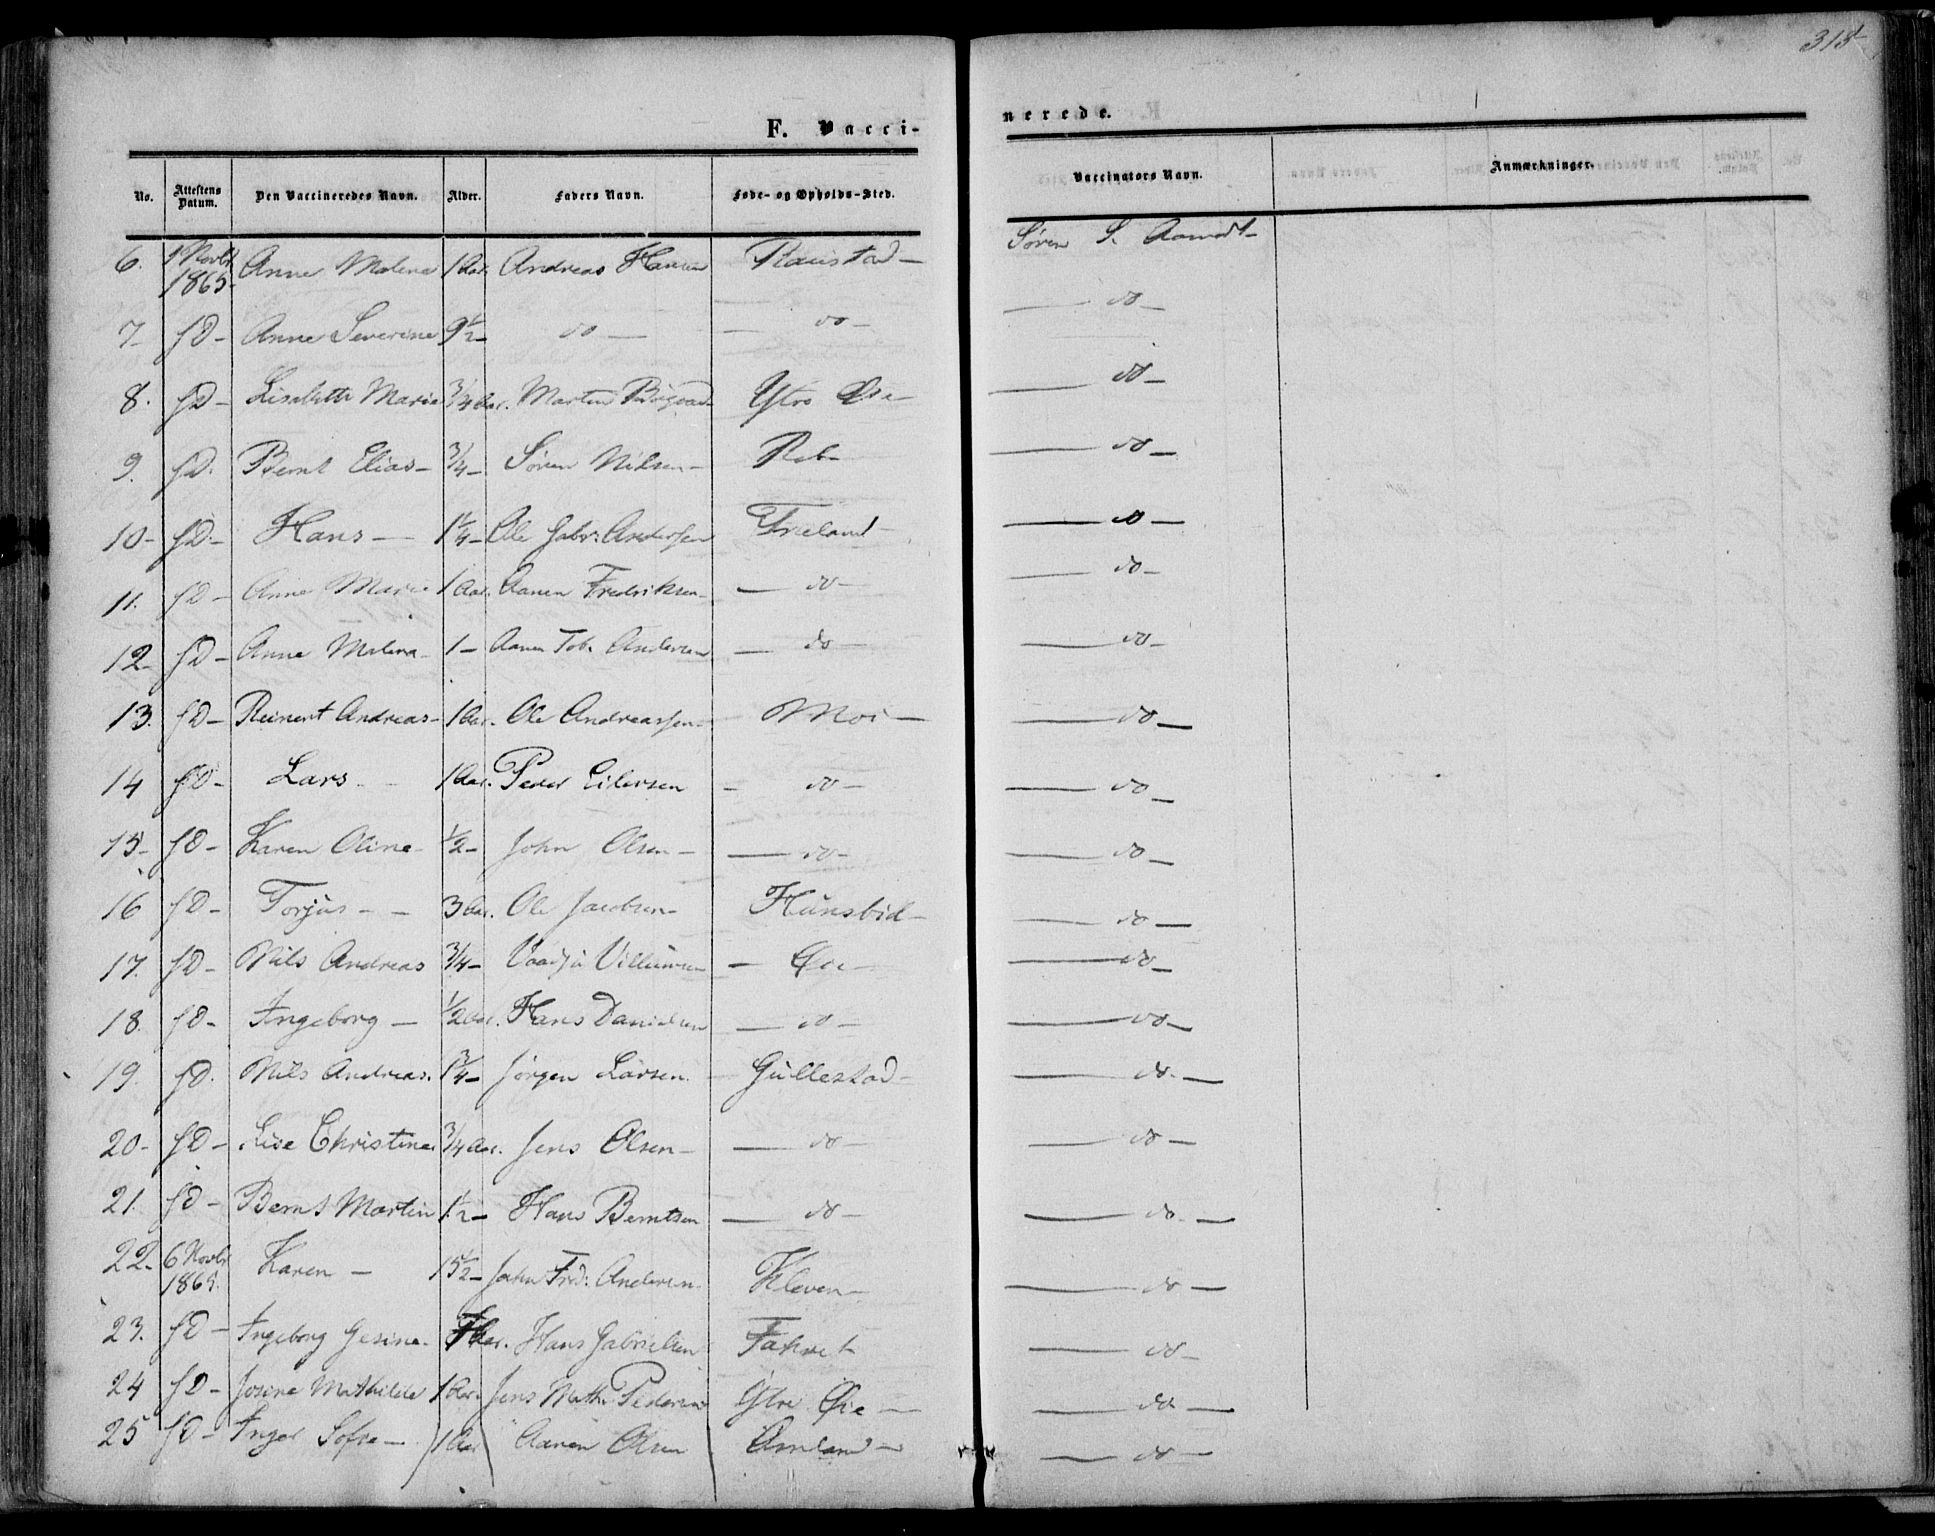 318
F. Vacci-
nerede.
No. Attestens Datum. Den Vaccineredes Navn. Alder. Faders Navn. Føde- og Opholds-Sted. Vaccinators Navn. Anmærkninger.
6. 1 Novbr 1865 Anne Malene 1 Aar. Andreas Hansen Raustad - Søren S. Aamodt
7 sD - Anne Severine 9 1/2 - do - - do - - do -
8. sD - Lisabeth Marie 3/4 Aar. Martin Ytre Øie - - do -
9. sD. Bernt Elias - 3/4 - Søren Nilsen - - do -
10 - sD - Hans - 1 1/4 - Ole Gabr: Andersen Trieland - - do -
11. sD - Anne Marie 1 Aar. Aanen Fredriksen - - do - - do -
12 - sD - Anne Malena - 1 - Aanen Tob. Andersen - do - - do -
13. sD - Reinert Andreas - 1 Aar. Ole Andreassen - Moi - - do -
14 sD - Lars - 1 Aar. Peder Eilersen - do - - do -
15 - sD - Karen Oline - 1/2 - John Olsen - - do - - do -
16 sD - Torjus - - 3 Aar. Ole Jacobsen - Hunsbid - - do -
17. sD - Nils Andreas 3/4 - Villumsen - Øie - - do -
18. sD - Ingeborg - 1/2 Aar. Hans Danielsen - do - - do -
19. sD. Nils Andreas. 1 3/4 - Jørgen Larsen. Gullestad - - do. -
20 - sD - Lise Christine. 3/4 Aar. Jens Olsen - - do - - do -
21. sD - Bernt Martin 1 1/2 - Hans Berntsen - do - - do. -
22. 6 Novbr 1865. Karen - 15 1/2 - John Fred: Andersen. Kleven - - do -
23. sD - Ingeborg Gesine. Aar. Hans Gabrielsen - do -
24 sD - Josine Mathilde 1 Aar. Jens Math. Pedersen Ytre Øie - - do. -
25 sD - Inger Sofie - 1 Aar Aanen Olsen - do -